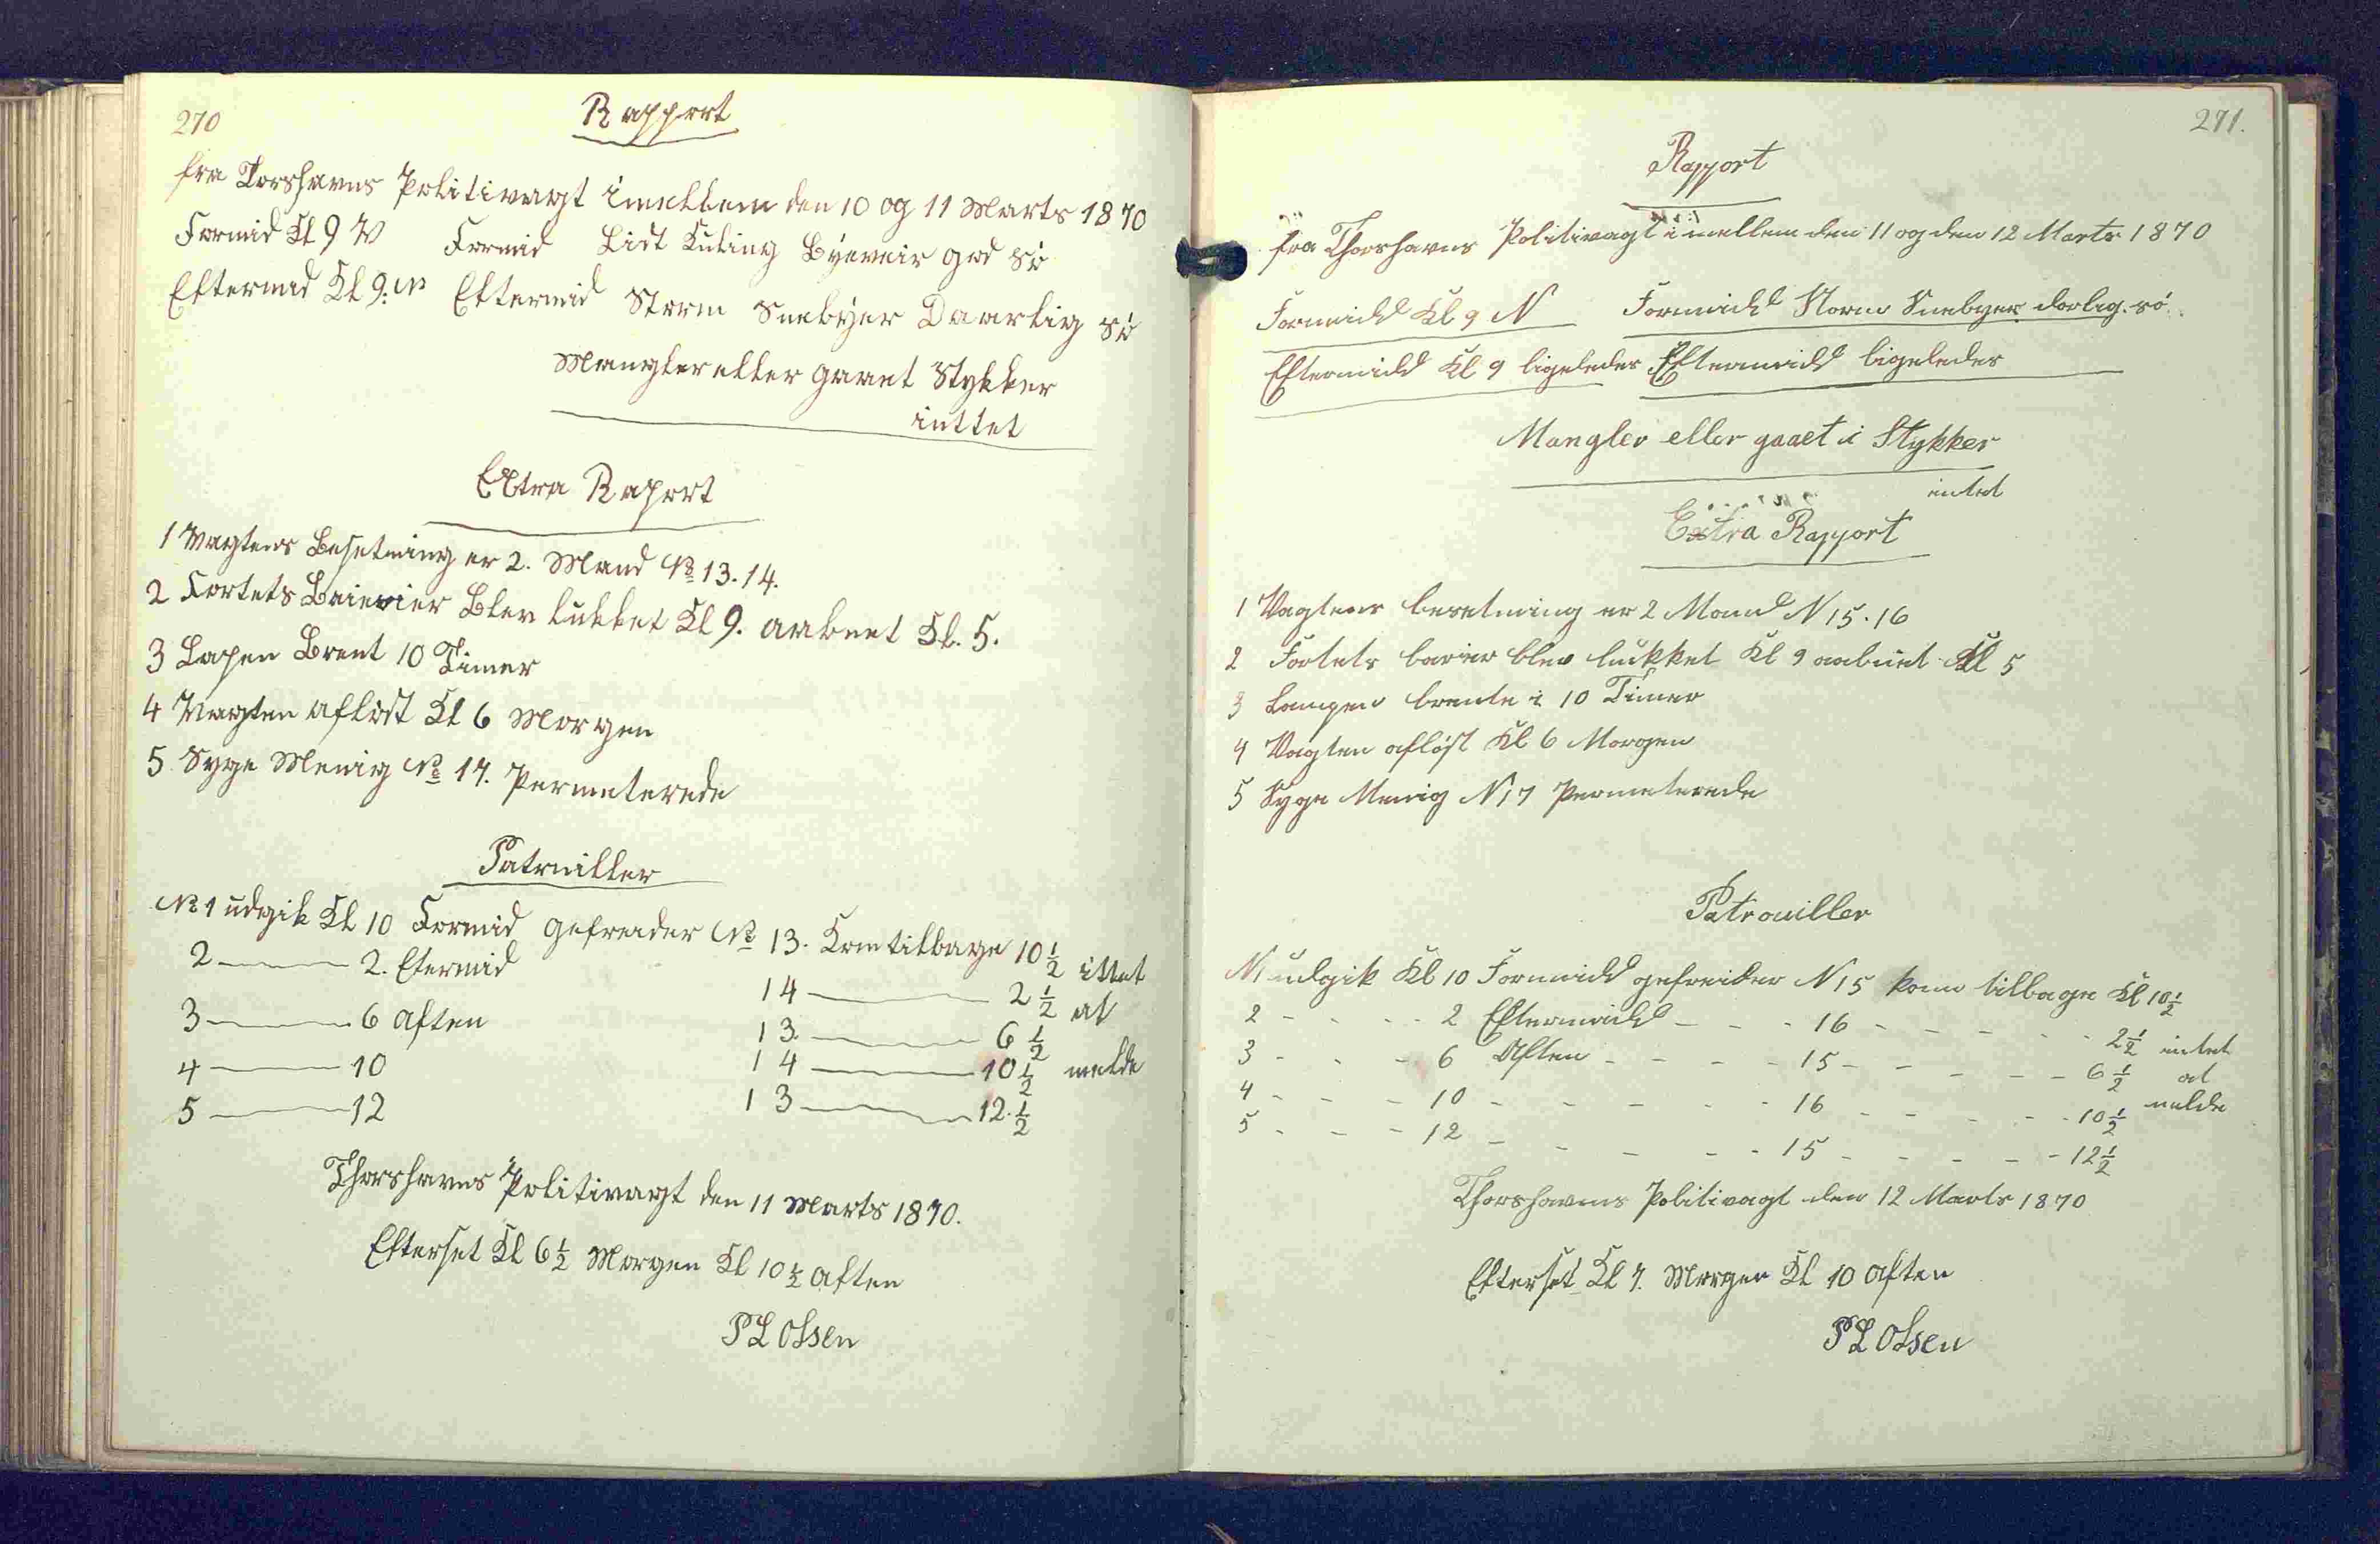 270
Rapport
fra Torshavns Politivagt imellem den 10 og 11 Marts 1870
Formid Kl 9 V Formid Lidt Kuling Byeveir god Sö
Eftermid Kl 9. N Eftermid Storm Sneebyer Daarlig Sö
Mangler eller gaaet Stykker
inttet
Extra Raport
1 Vagtens Besetning er 2. Mand No 13. 14.
2 Fortets Baierier Blev lukket Kl 9. aabnet Kl. 5.
3 Lapen Brent 10 Timer
4 Vagten aflöst Kl 6 Morgen
5 Syge Menig No 17. Permeterede
Patruiller
No 1 udgik Kl 10 Formid gefreider No 13. Kom tilbage 10 1/2 ittet
2 — 2. Etermid 14 — 2 1/2 at
3 — 6 Aften 13. — 6 1/2
4 — 10 14 — 10 1/2 melde
5 — 12 13 — 12. 1/2
Thorshavns Politivagt den 11 Marts 1870.
Efterset Kl 6 1/2 Morgen Kl 10 1/2 Aften
P L Olsen
271.
Rapport
fra Thorshavns Politivagt imellem den 11 og den 12 Marts 1870
Formidd Kl 9 N Formidd Storm Snebyer dorlig. sö
Eftermidd Kl 9 ligeledes Eftermidd ligeledes
Mangler eller gaaet i Stykker
intet
Extra Rapport
1 Vagtens besetning er 2 Mand N 15. 16
2 Fortets barier blev lukket Kl 9 aabnet Kl 5
3 Lampen brente i 10 Timer
4 Vagten aflöst Kl 6 Morgen
5 Syge Menig N 17 Permeterede
Patrouiller
N 1 udgik Kl 10 Formidd gefreider N 15 kom tilbage Kl 10 1/2
2 - - - - 2 Eftermidd - - - 16 - - - - - 2 1/2 intet
3 - - - 6 Aften - - - - 15 - - - - - 6 1/2 at
4 - - - 10 - - - - - 16 - - - - - 10 1/2 melde
5 - - - 12 - - - - - 15 - - - - - 12 1/2
Thorshavns Politivagt den 12 Marts 1870
Efterset Kl 7. Morgen Kl 10 Aften
P L Olsen